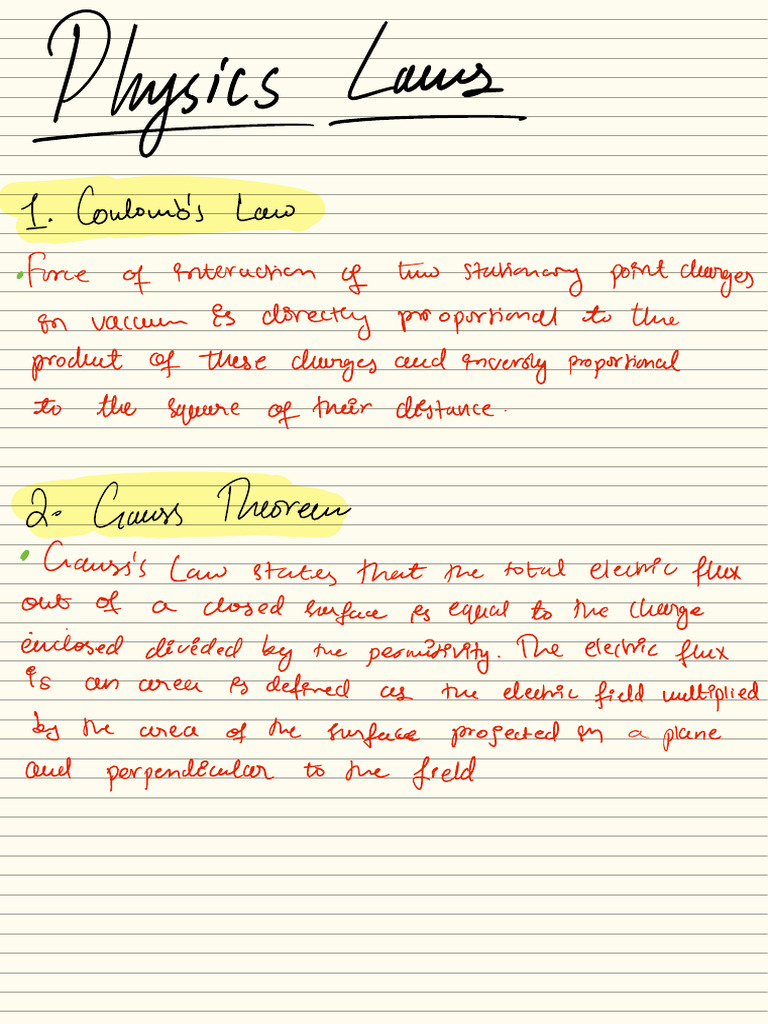 Physics Laws
1. Coulomb's Law
• Force of interaction of two stationary point charges
in vaccum is directly proportional to the
product of these charges and inversly proportional
to the square of their distance.
2. Gauss Theorem
• Gauss's Law states that the total electric flux
out of a closed surface is equal to the charge
enclosed divided by the permitivity. The electric flux
is an area is defined as the electric field multiplied
by the area of the surface projected in a plane
and perpendicular to the field